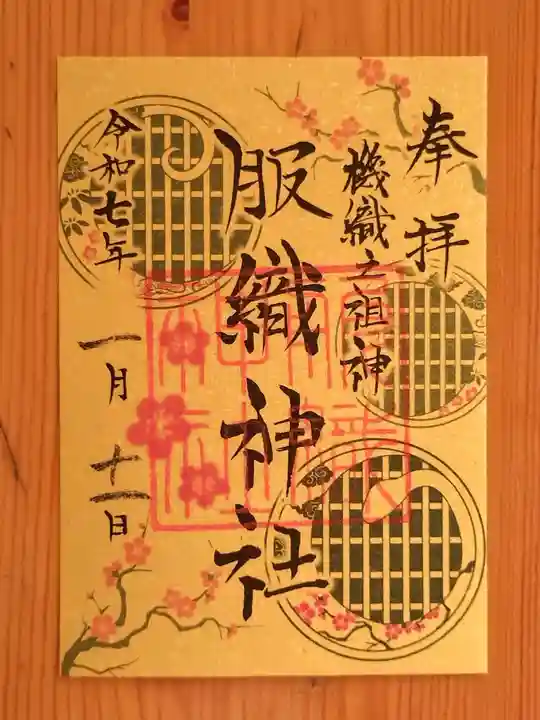 奉拝
機織之祖神
服織神社
令和七年
一月十一日